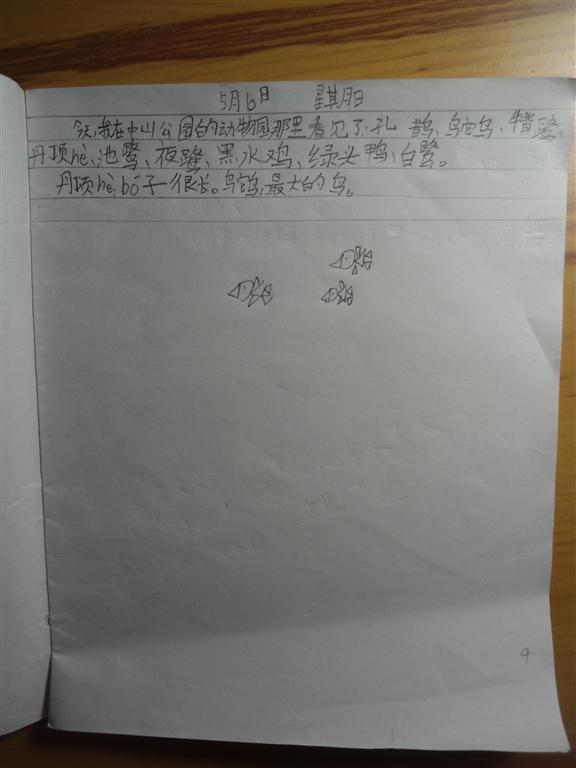 5月6日 星期日
今天,我在中山公园的动物园那里看见了孔 鹊、鸵鸟、牛背鹭、
丹顶hè、池鹭、夜鹭、黑水鸡、绿头鸭、白鹭。
丹顶hè,bó子很长。鸵鸟,最大的鸟。
4